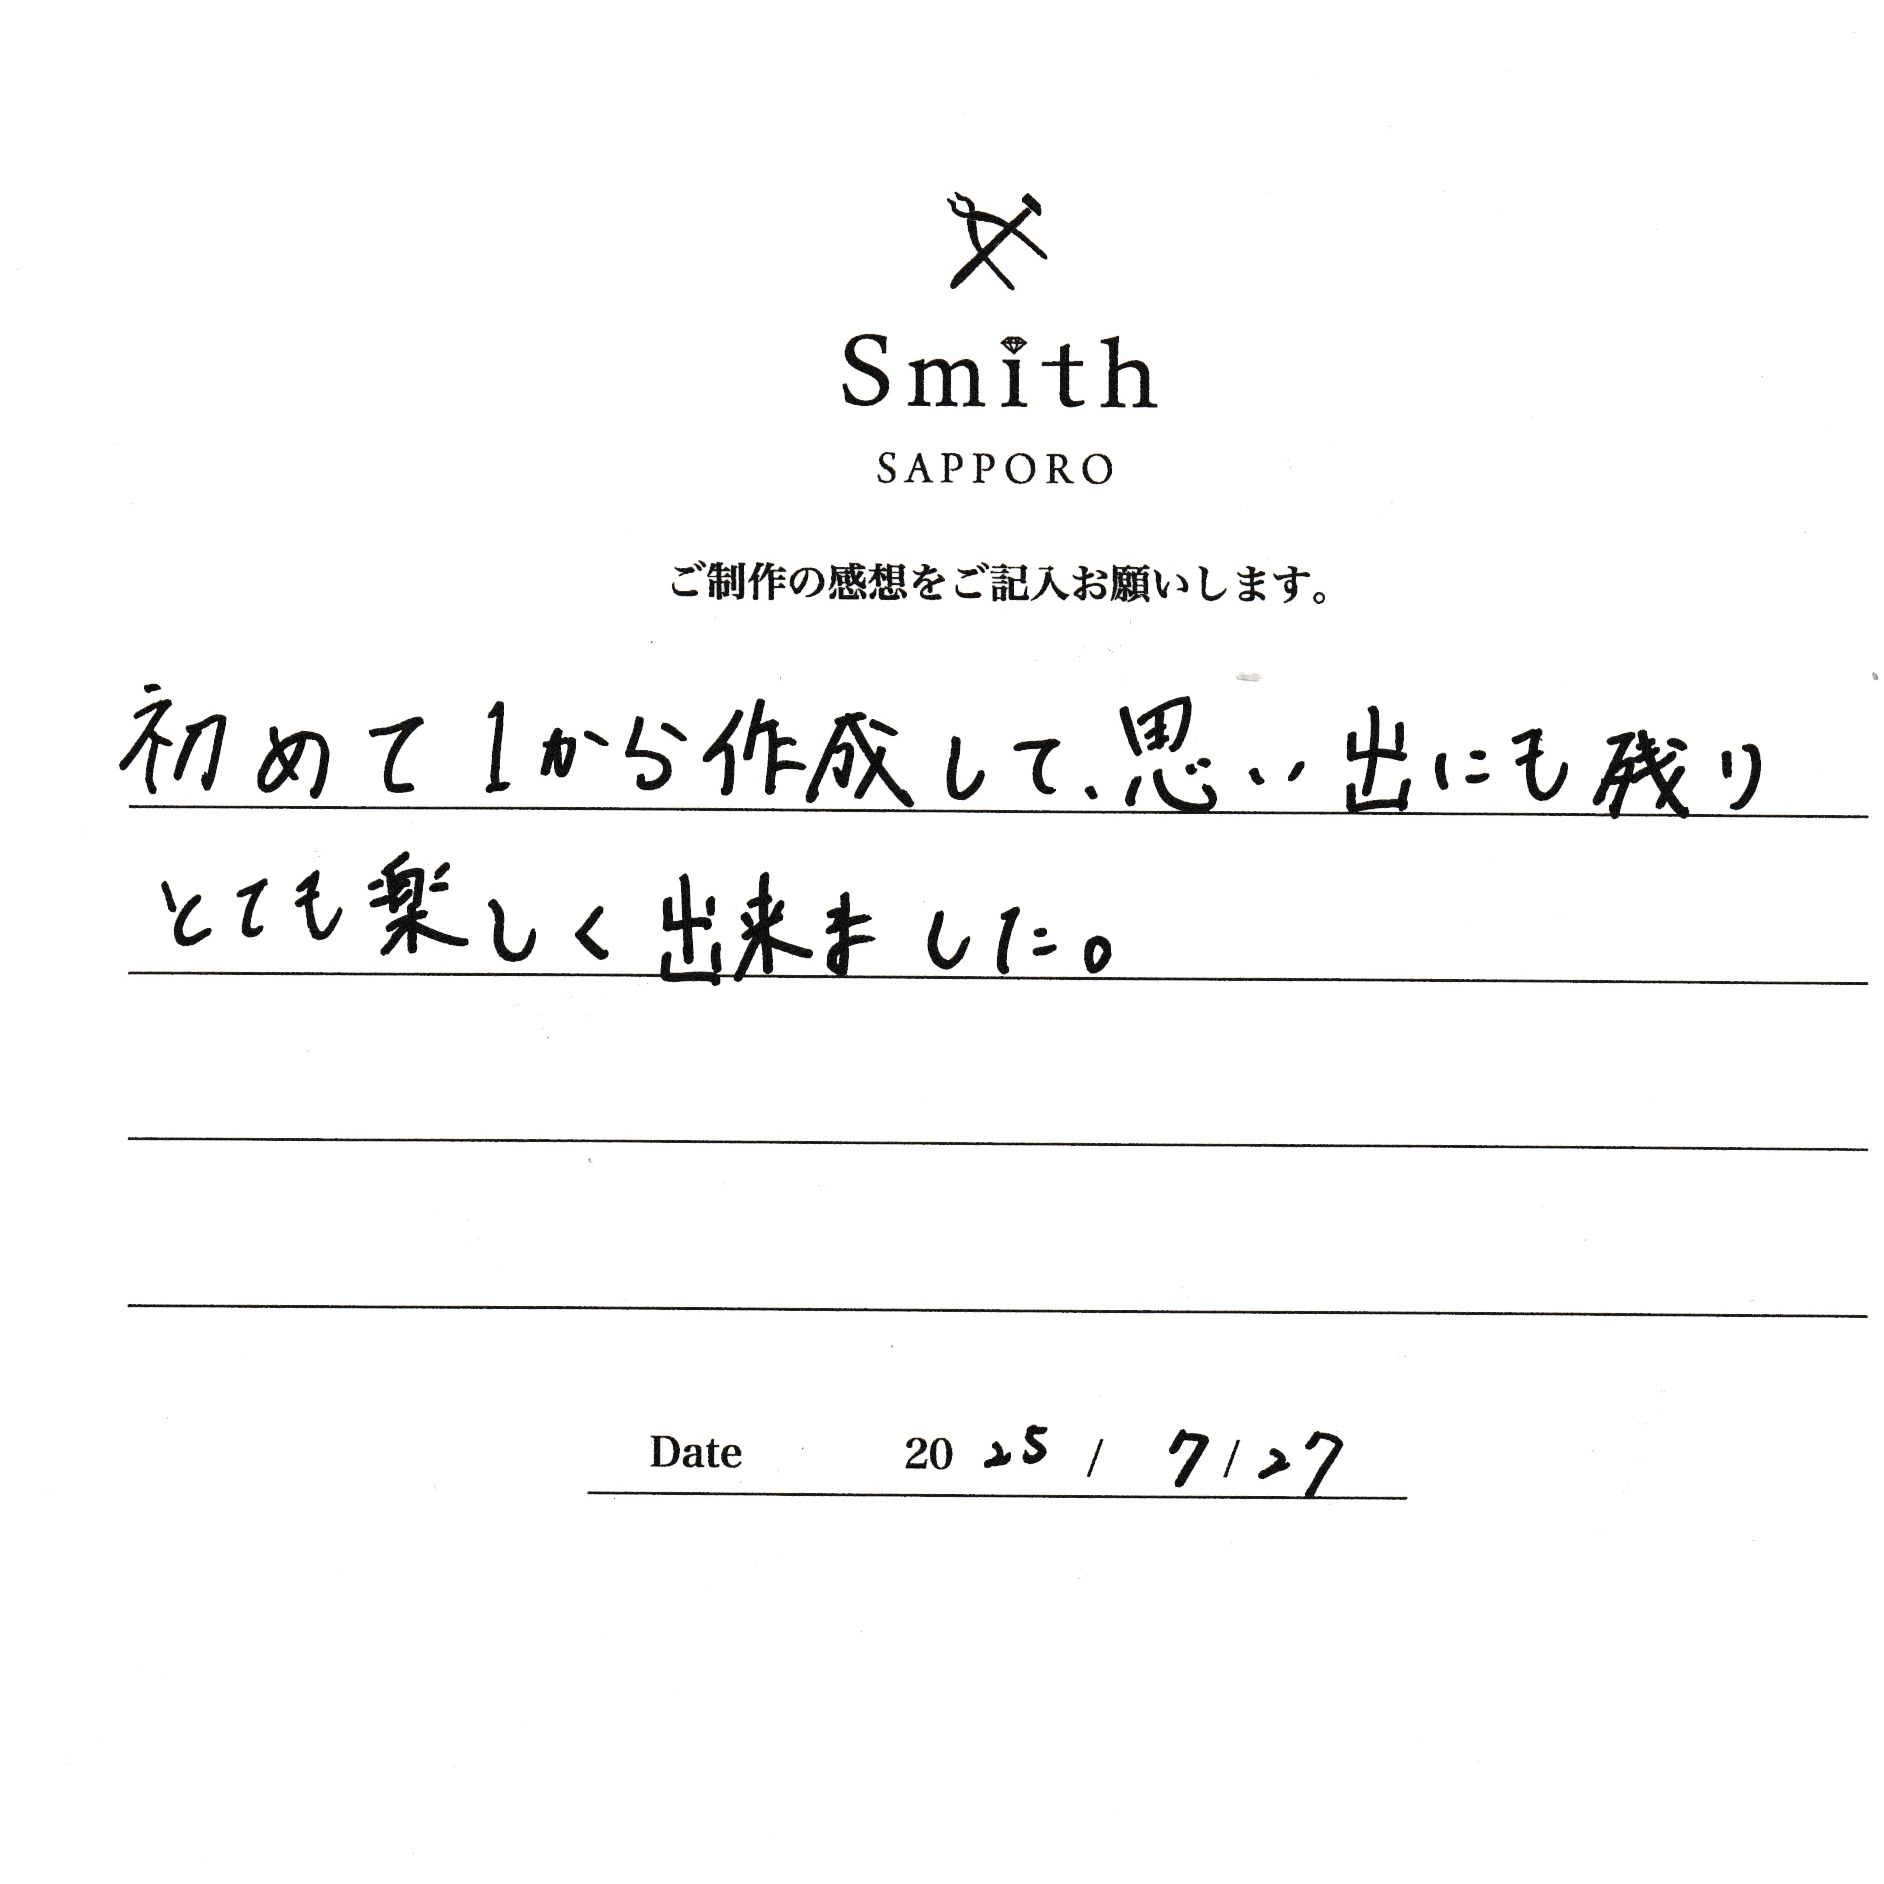 Smith
SAPPORO
ご制作の感想をご記入お願いします。
初めて1から作成して、思い出にも残り
とても楽しく出来ました。
Date 2025 / 7 / 27